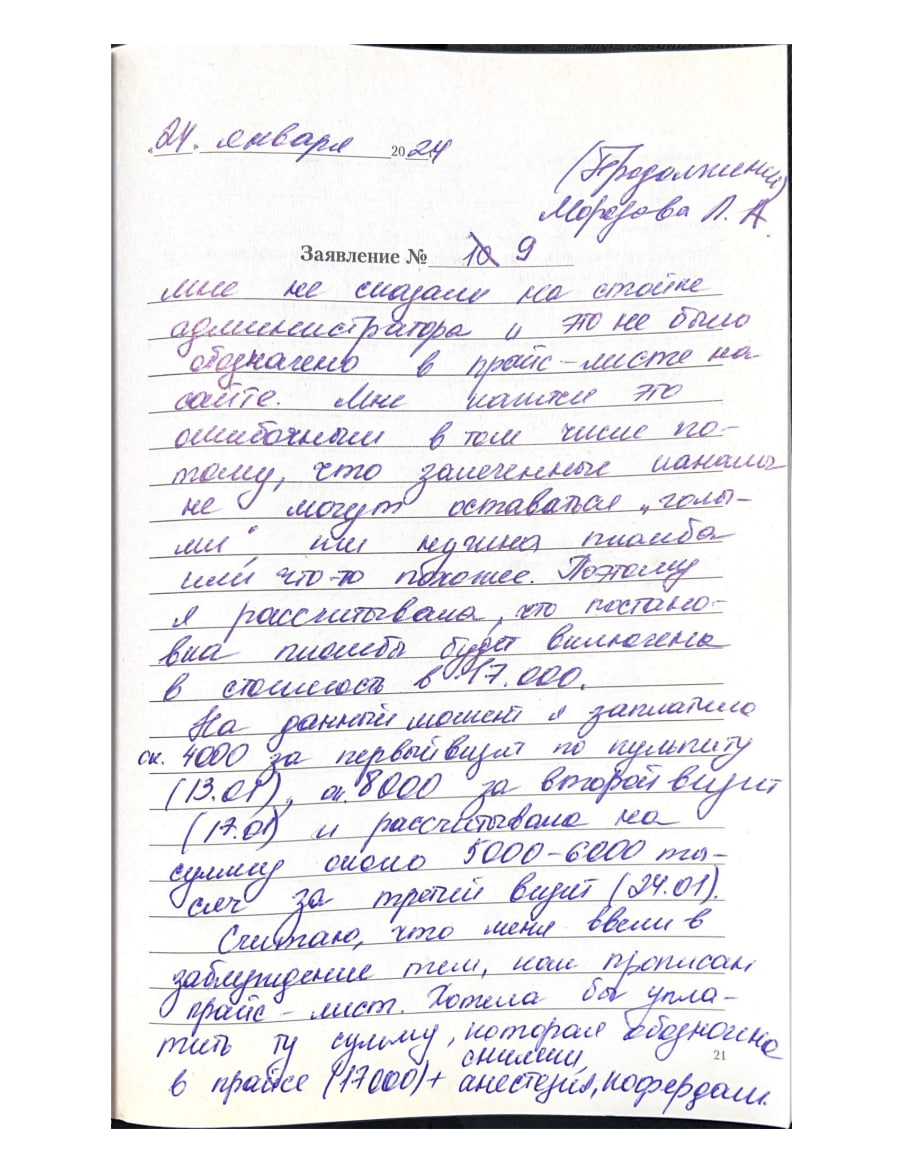 „24" января 2024
(Продолжение)
Морозова Л. А.
Заявление № 10 9
мне не сказали на стойке
администратора и это не было
обозначено в прайс-листе на
сайте. Мне кажется это
ошибочным в том числе по-
тому, что залеченные каналы
не могут оставаться „голы-
ми", им нужна пломба
или что-то похожее. Поэтому
я рассчитывала, что постано-
вка пломбы будет включена
в стоимость в 17.000.
На данный момент я заплатила
ок. 4000 за первый визит по пульпиту
(13.01), ок. 8000 за второй визит
(17.01) и рассчитывала на
сумму около 5000-6000 ты-
сяч за третий визит (24.01).
Считаю, что меня ввели в
заблуждение тем, как прописан
прайс-лист. Хотела бы упла-
тить ту сумму, которая обозначена
снимки,
в прайсе (17000)+ анестезия, кофердам.
21